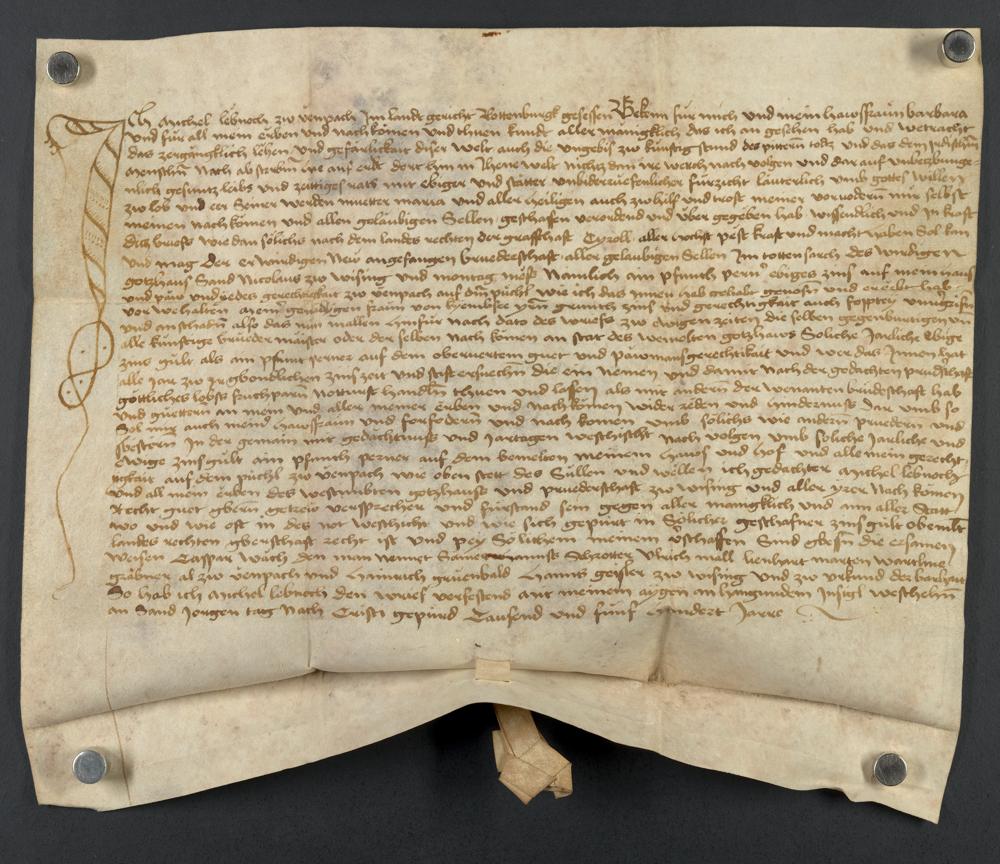 Ich Michel lebnoch zw venpach Im landt gericht Rottenburgk gesessen Bekenn für mich und mein hawsfraun barbara
und für all mein erben und nachkömen und thuen kundt aller mangklich das ich an gesehen hab und wetracht
das zergängklich leben und gefärlickait diser welt auch die ungebis zw künftig stund des pittern todtz und das dem
menschen nach absterbn hie auf erdt dort hin in Ihene welt nichtz den ire werch nach volgen und dar auf
gesuntz leibs und zeittiges ratz mit ebiger und stätter fürzicht läuterlich umb gottes willen
zw lob und eer Seiner werden mueter maria und aller heiligen auch zw hilf und trost meiner vorvodern mir selbst
meinen nachkömen und allen gelaubigen Sellen geschafen verordend und über gegeben hab wissendlich und in kraft
ditz briefs wie dan sölichs nach dem landes rechten der graffschaft Tyroll aller höchst pest kraft und macht haben Sol kan
und mag Der erwirdigen New angefangen brueederschaft aller gelaubigen Sellen Im totten sarch des wirdigen
gotzhaus Sand Nicolaus zw wising und montag mess Nämlich ain pfunth pern ebiges zins auf mein haus
und paw und gerechtigkait zw venpach auf dem püchl wie ich das Innen hab gehabt genossen und
vor wehalten meiner genädigen fraun von grunth zins und gerechtigkait auch
und also das nun mallen hinfür nach dato des briefs zw ewigen zeiten die selben gegenburtigen und
alle künftige brueder maister oder der selben nach kömen an stat des gotzhaws Soliche Jarliche Ebige
zins gült als ain pfunt perner auf dem obernentem guet und pawmansgerechtikait und wer das Innen hat
alle jar zw zins zeit und stift ersuechn die ein nemen und damit nach der gedachten prudschaft
göttliches lobs notturft handln thuen und lasen als mit andern der brüdeschaft hab
und güettern an mein und aller meiner erben und nach kömen wider reden und hindernuss Dar umb so
Sol mir auch meiner hawsfraun und forfodern und nach kömen umb solichs wie andern pruedern und
swestern In der gemain mit gedächtnuss und Jartagen weschicht nach volgen umb soliche Jarliche und
Ewige zinsgült ain pfunth perner auf dem bemelten meinem haws und hof und alle mein gerecht
tigkait auf dem püchl zw venpach wie oben stett des Sullen und wöllen ich gedachter Michel lebnoch
und all mein erben des westimbten gotzhauss und pruederschaft zw wising und aller irer nach kömen
Recht guet gbern getrew versprecher und fürstand sein gegen aller mangklich und an aller Statt
wo und wie oft in des not weschicht und wie sich gepürt in Sölicher geschafner zinsgült obemelt
landes rechten gberschaft recht ist und pey Sölichem meinem gschaffen Sind gbesn die ersamen
weisen Caspar wäch den man nennet Schrotter Ulrich mall lienhart marten
gräbner al zw venpach und hainrich gruenbald hanns geisler zw wising und zw urkund der warhait
So hab ich michel lebnoch den brief verfestend mit meinem aygen an hangundem Insigl weschehen
an Sand Jorgen tag nach Cristi gepürd Tausend und fünf hundert Jarre